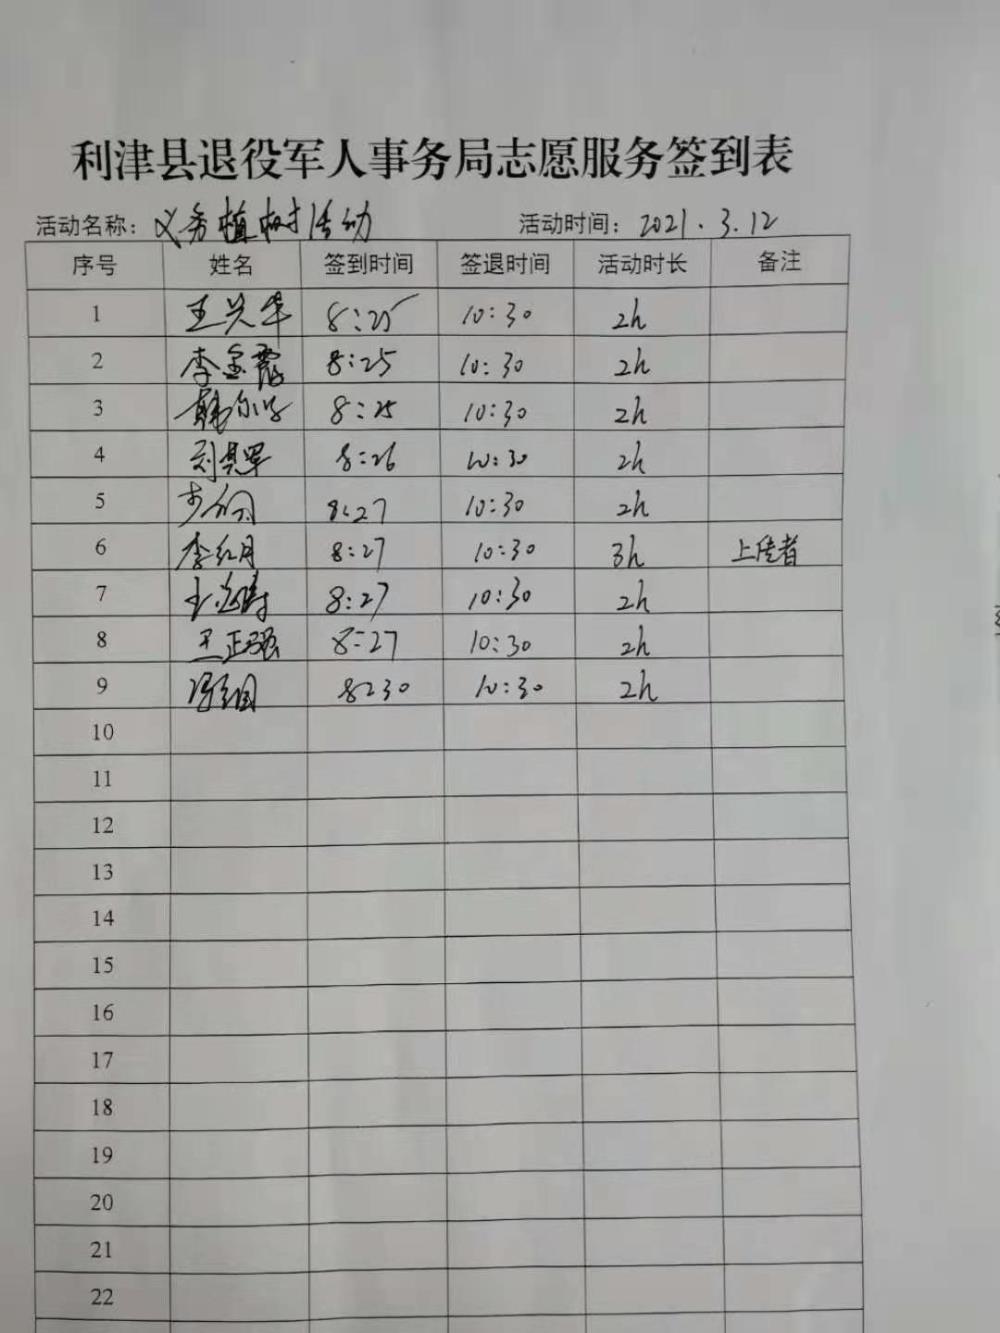 利津县退役军人事务局志愿服务签到表
活动名称：义务植树活动 活动时间：2021.3.12
序号 姓名 签到时间 签退时间 活动时长 备注
1 王兴华 8:25 10:30 2h
2 李金霞 8:25 10:30 2h
3 8:25 10:30 2h
4 刘其军 8:26 10:30 2h
5 8:27 10:30 2h
6 李红月 8:27 10:30 3h 上传者
7 8:27 10:30 2h
8 王正强 8:27 10:30 2h
9 8:30 10:30 2h
10
11
12
13
14
15
16
17
18
19
20
21
22